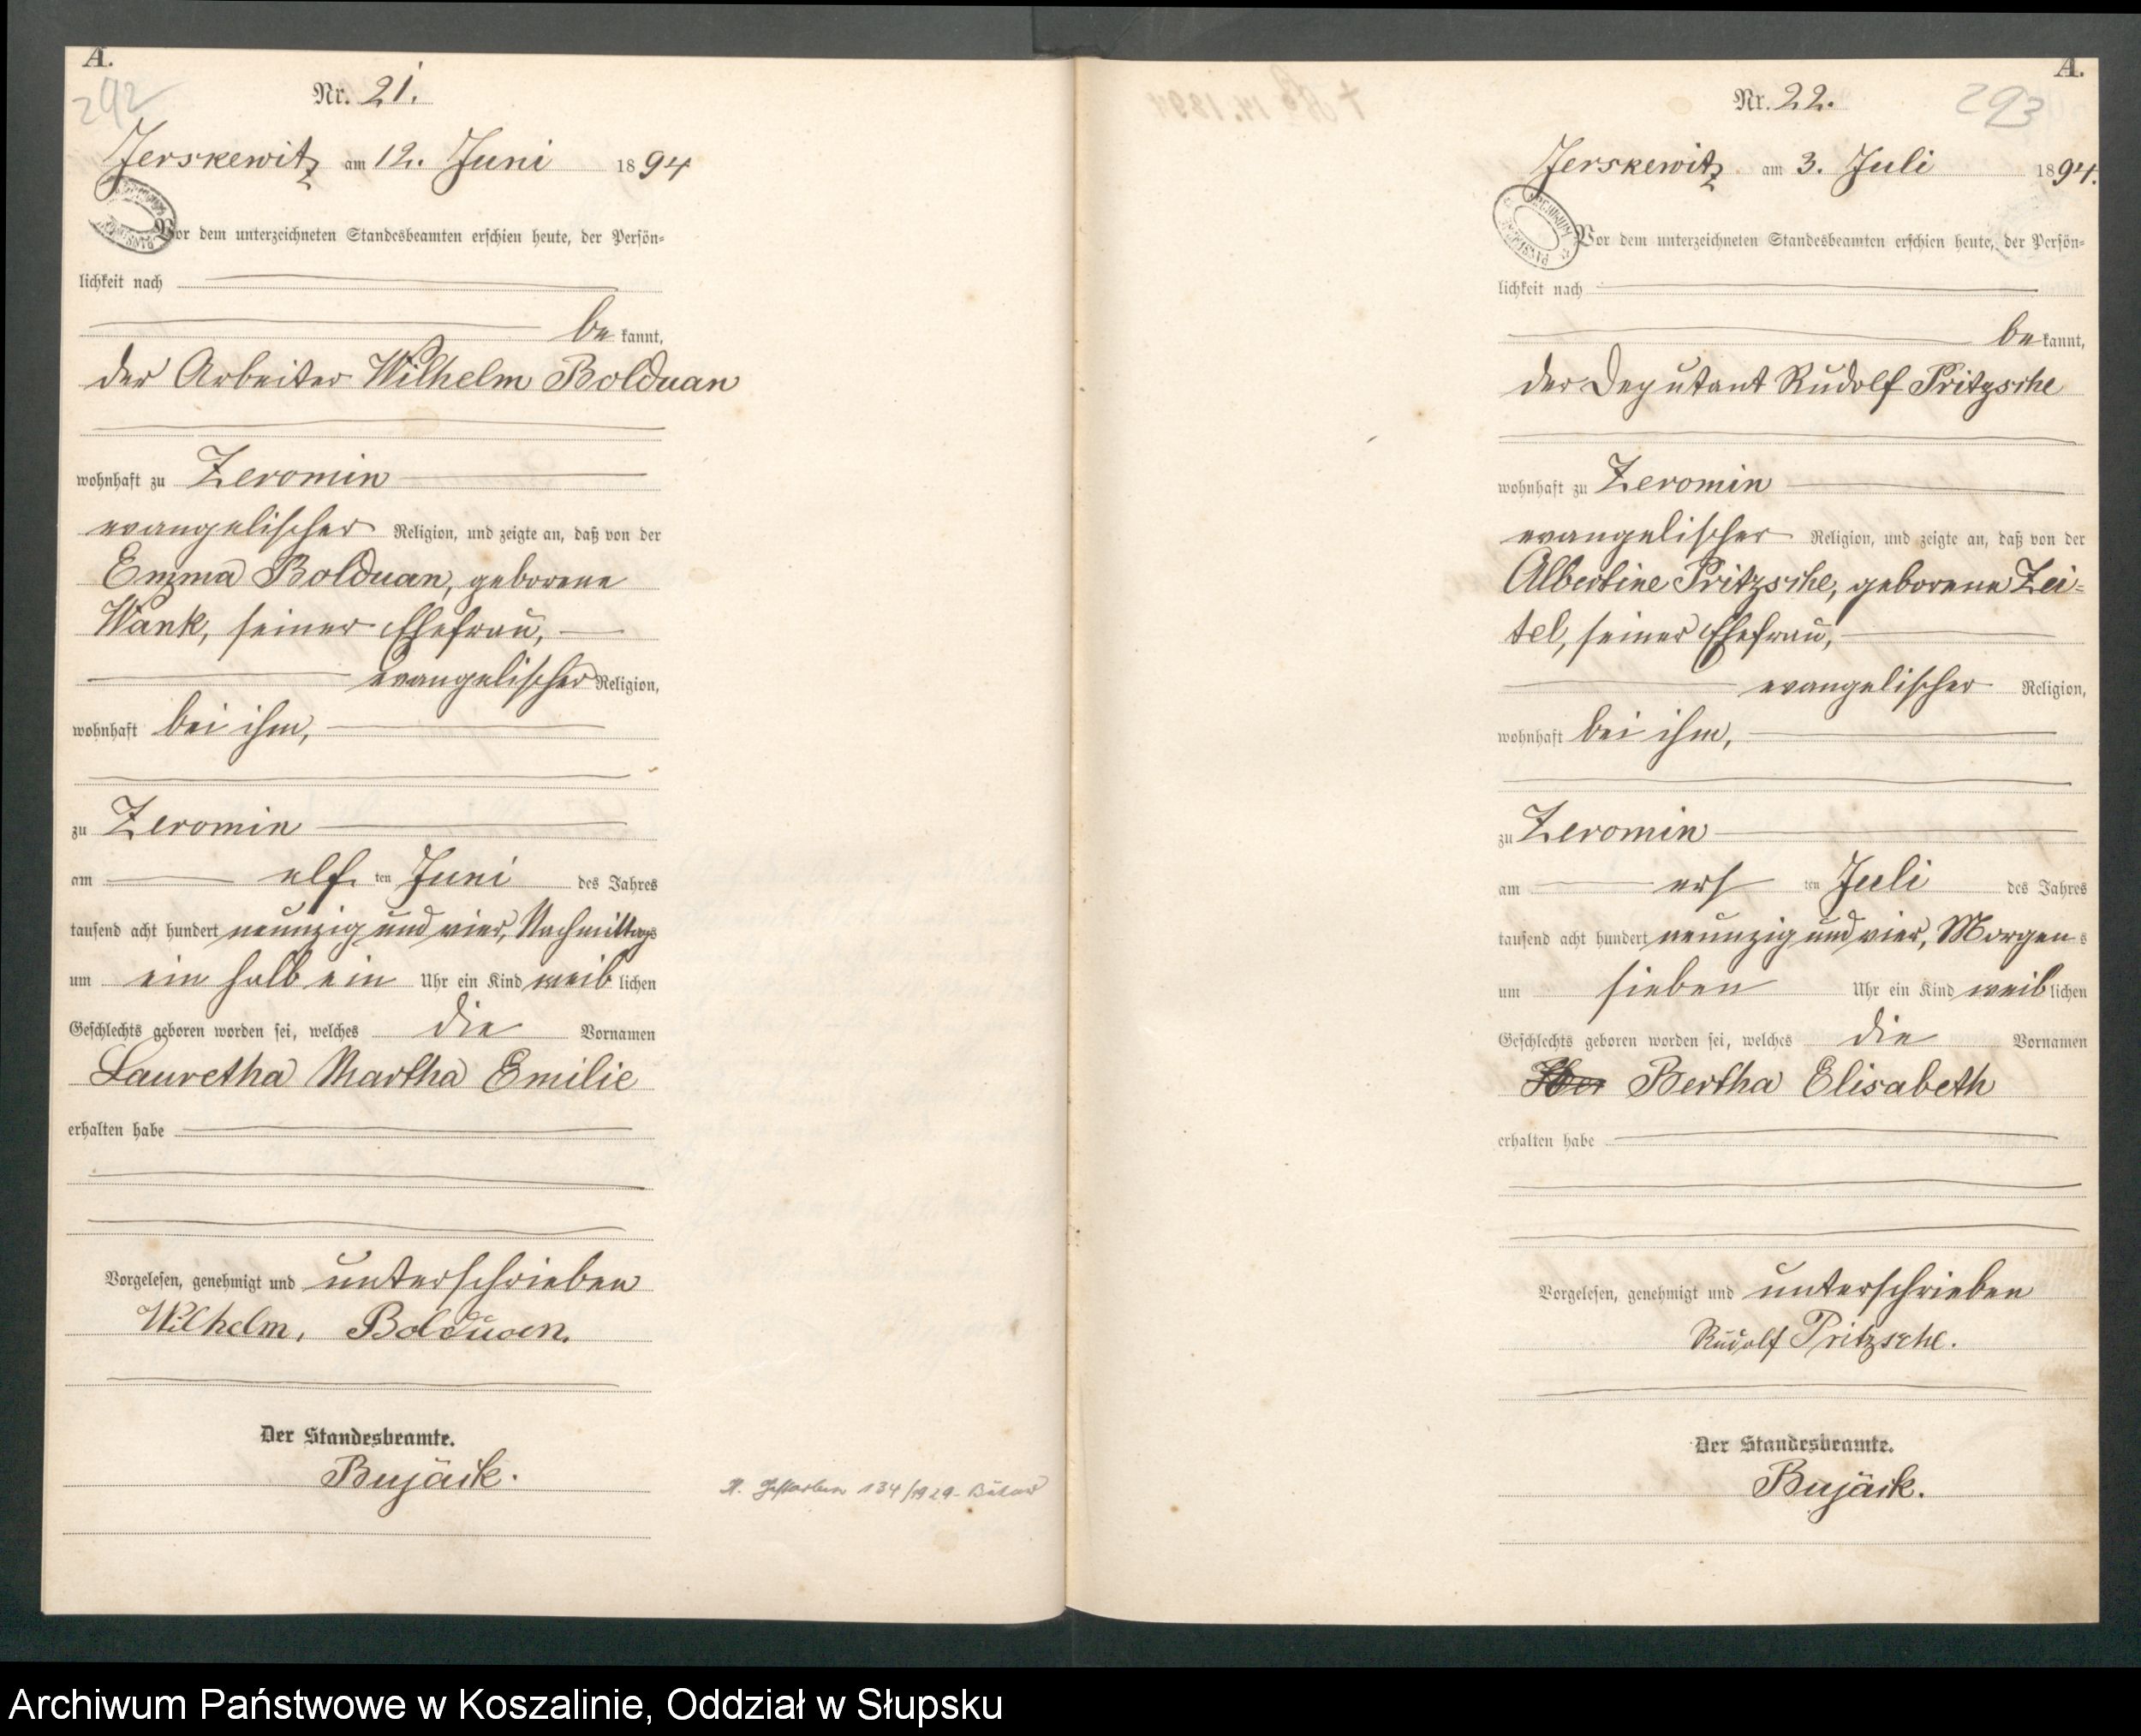 A.
292
Nr. 21.
Jerskewitz am 12. Juni 1894
Vor dem unterzeichneten Standesbeamten erschien heute, der Persön-
lichkeit nach
be kannt,
der Arbeiter Wilhelm Bolduan
wohnhaft zu Zeromin
evangelischer Religion, und zeigte an, daß von der
Emma Bolduan, geborene
Wank, seiner Ehefrau,
evangelischer Religion,
wohnhaft bei ihm,
zu Zeromin
am elf ten Juni des Jahres
tausend acht hundert neunzig und vier, Nachmittags
um ein halb ein Uhr ein Kind weib lichen
Geschlechts geboren worden sei, welches die Vornamen
Lauretha Martha Emilie
erhalten habe
Vorgelesen, genehmigt und unterschrieben
Wilhelm, Bolduan.
Der Standesbeamte.
Bujäck.
Gestorben 134/1929 - Bütow
A.
293
Nr. 22.
Jerskewitz am 3. Juli 1894.
Vor dem unterzeichneten Standesbeamten erschien heute, der Persön-
lichkeit nach
be kannt,
der Deputant Rudolf Pritzsche
wohnhaft zu Zeromin
evangelischer Religion, und zeigte an, daß von der
Albertine Pritzsche, geborene Zei-
tel, seiner Ehefrau,
evangelischer Religion,
wohnhaft bei ihm,
zu Zeromin
am ers ten Juli des Jahres
tausend acht hundert neunzig und vier, Morgens
um sieben Uhr ein Kind weib lichen
Geschlechts geboren worden sei, welches die Vornamen
Bertha Elisabeth
erhalten habe
Vorgelesen, genehmigt und unterschrieben
Rudolf Pritzsche.
Der Standesbeamte.
Bujäck.
Archiwum Państwowe w Koszalinie, Oddział w Słupsku